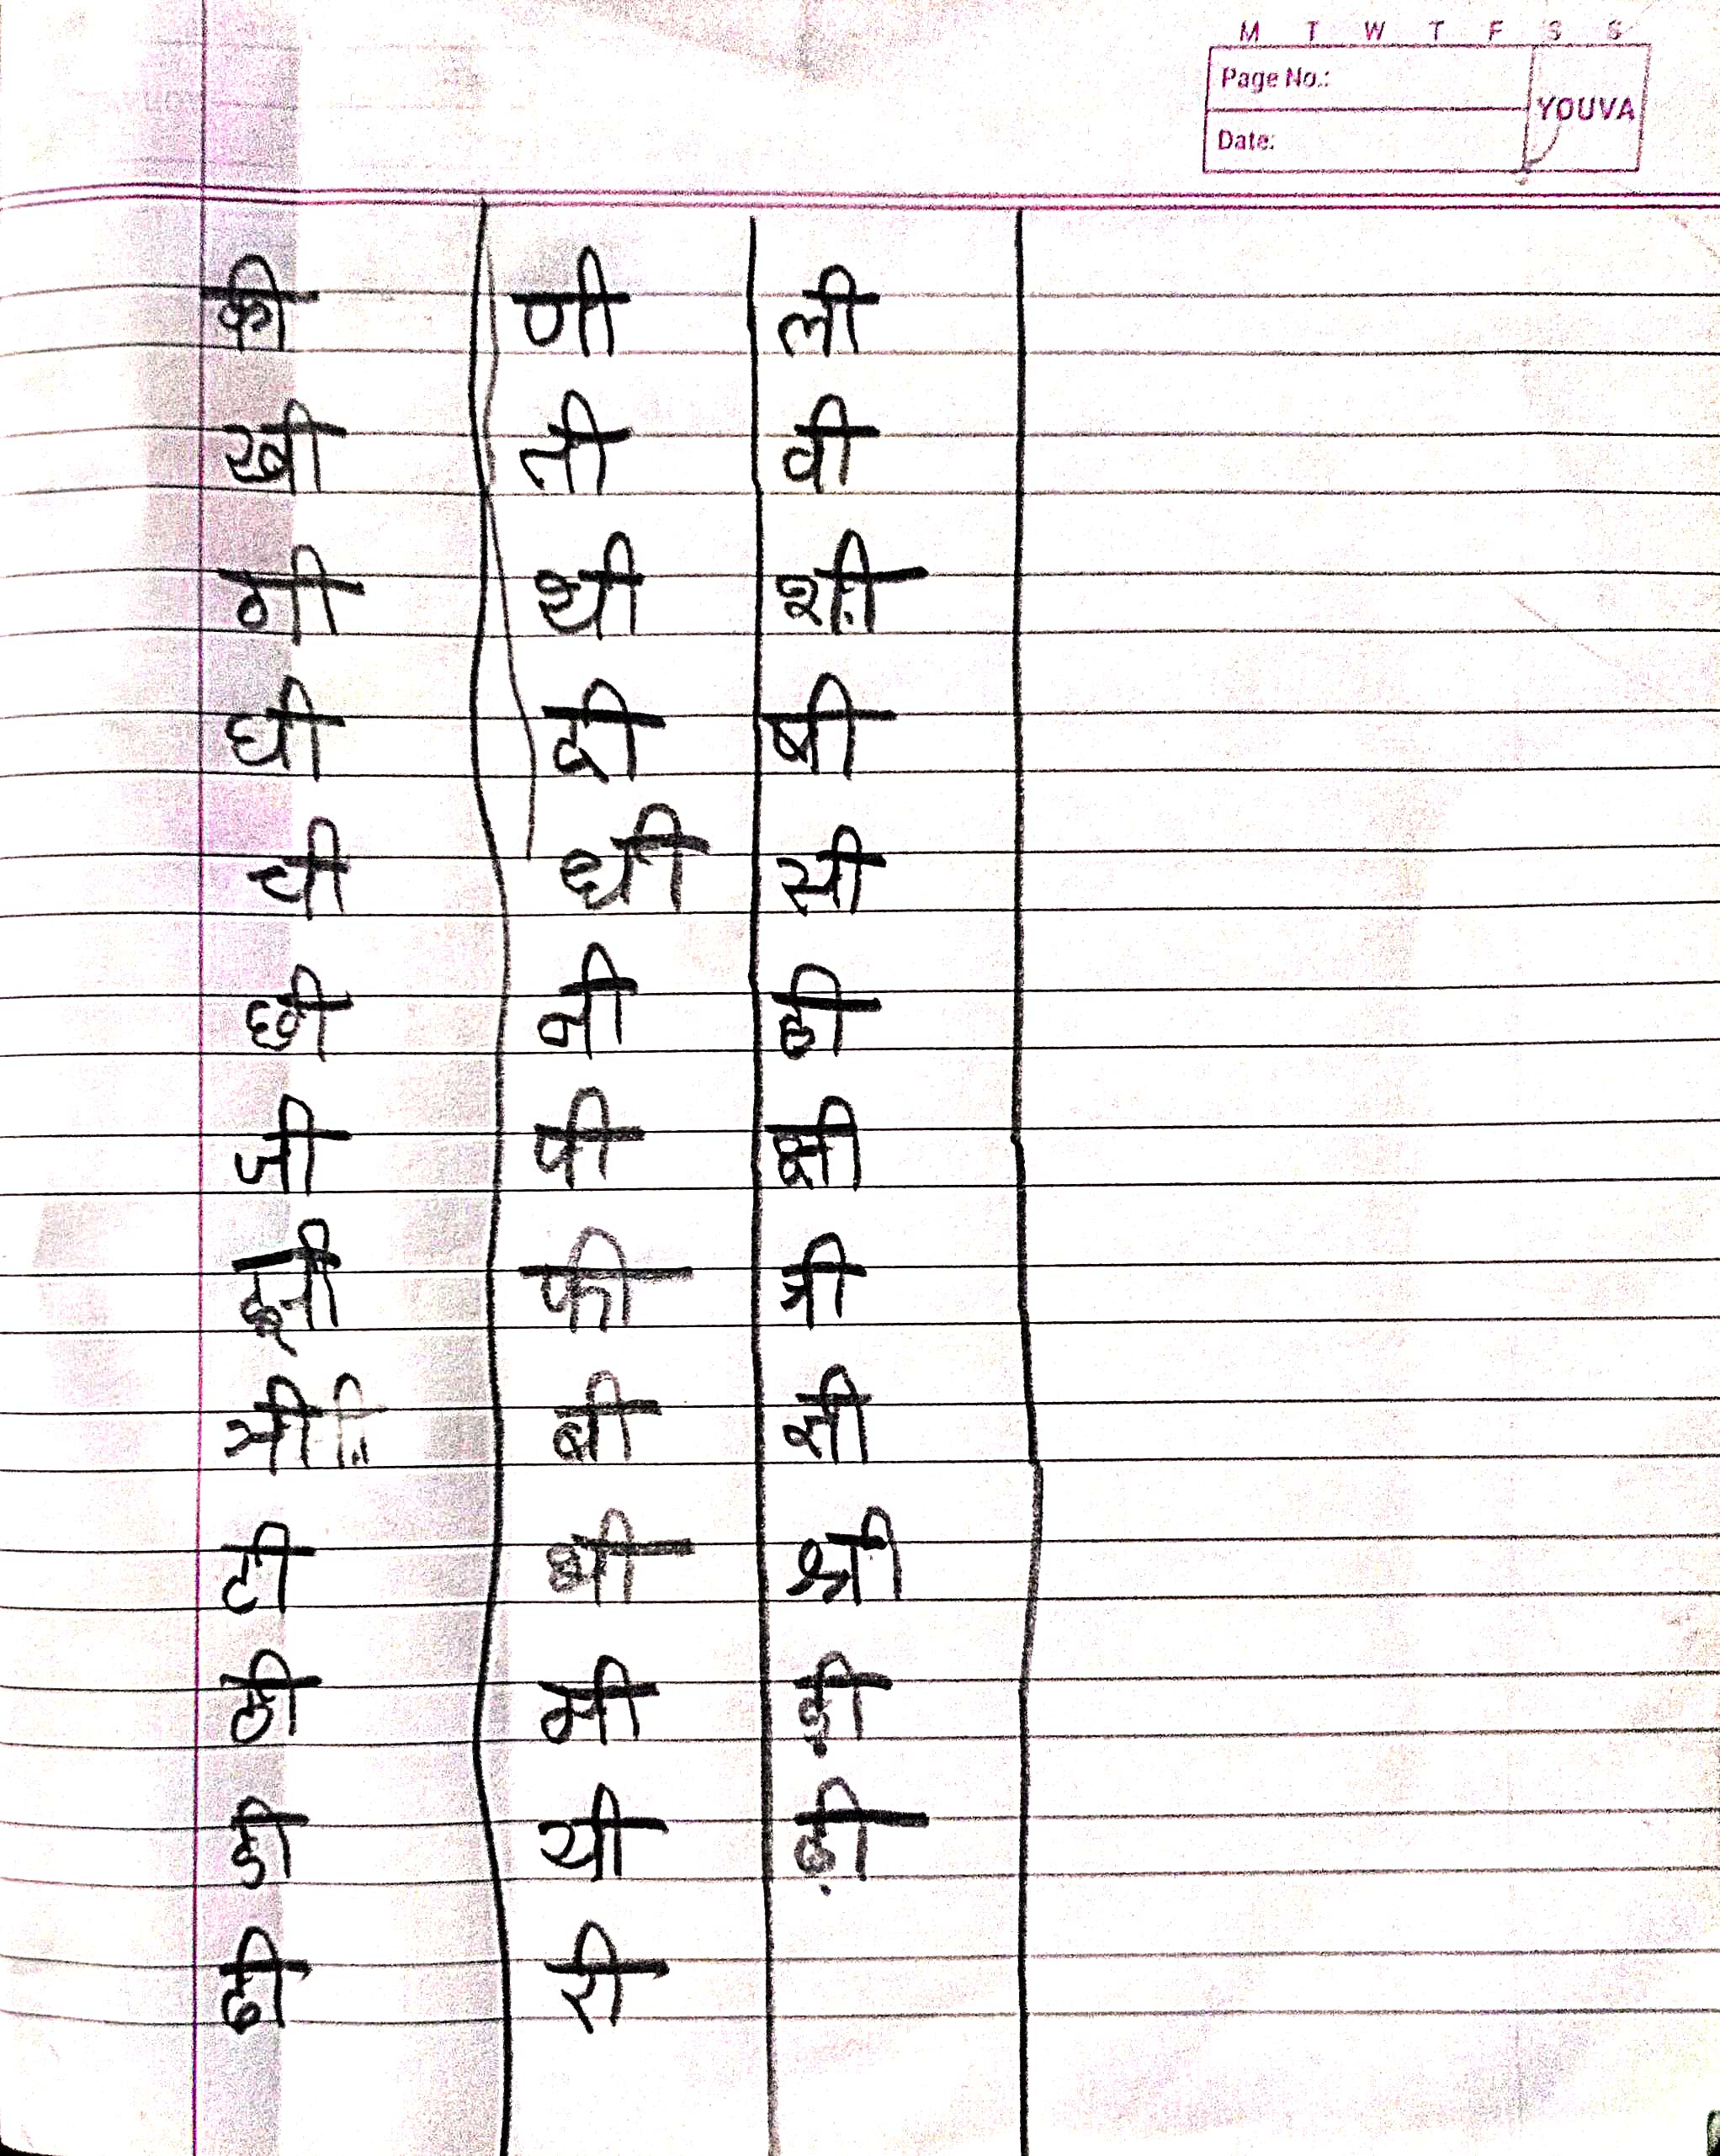 M T W T F S S
Page No.:
YOUVA
Date:
की णी ली
खी ती वी
गी थी शी
घी दी षी
ची धी सी
छी नी ही
जी पी क्षी
फी त्री
ञी बी ज्ञी
टी भी श्री
ठी मी ड़ी
डी यी ढ़ी
ढी री